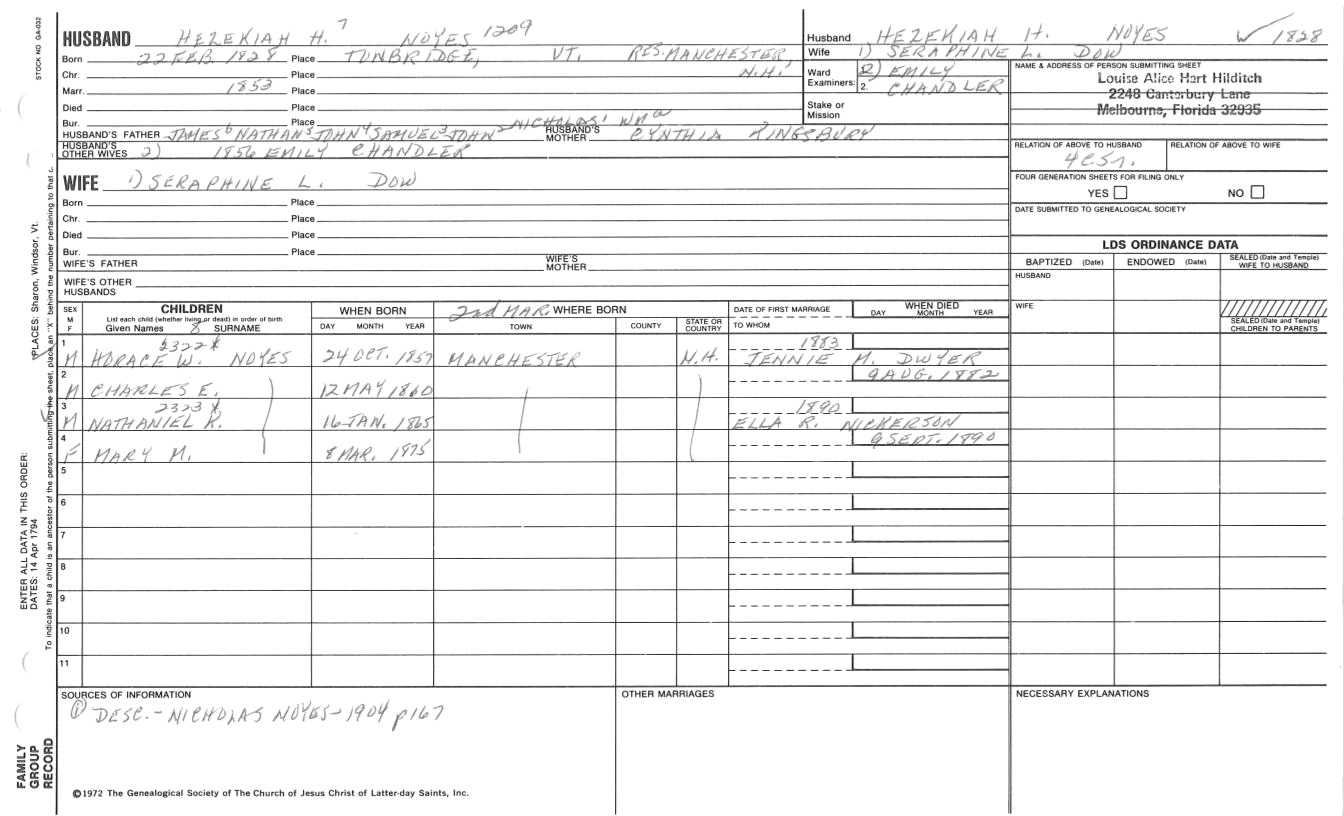 STOCK NO GA-032
HUSBAND HEZEKIAH H. 7 NOYES 1209
Born 22 FEB. 1828 Place TUNBRIDGE, VT. RES. MANCHESTER,
Chr. Place N.H.,
Marr. 1853 Place
Died Place
Bur. Place
HUSBAND'S FATHER JAMES 6 NATHAN 5 JOHN 4 SAMUEL 3 JOHN 2 NICHOLAS 1 Wm
HUSBAND'S MOTHER CYNTHIA KINGSBURY
HUSBAND'S OTHER WIVES 2) 1856 EMILY CHANDLER
WIFE 1) SERAPHINE L. DOW
Born Place
Chr. Place
Died Place
Bur. Place
WIFE'S FATHER WIFE'S MOTHER
WIFE'S OTHER HUSBANDS
Husband HEZEKIAH H. NOYES 1828
Wife 1) SERAPHINE L. DOW
Ward Examiners: 2) EMILY
2. CHANDLER
Stake or Mission
NAME & ADDRESS OF PERSON SUBMITTING SHEET
Louise Alice Hart Hilditch
2248 Canterbury Lane
Melbourne, Florida 32935
RELATION OF ABOVE TO HUSBAND RELATION OF ABOVE TO WIFE
FOUR GENERATION SHEETS FOR FILING ONLY
YES NO
DATE SUBMITTED TO GENEALOGICAL SOCIETY
LDS ORDINANCE DATA
BAPTIZED (Date) ENDOWED (Date) SEALED (Date and Temple) WIFE TO HUSBAND
HUSBAND
WIFE
SEALED (Date and Temple) CHILDREN TO PARENTS
SEX M F
CHILDREN
List each child (whether living or dead) in order of birth
Given Names 8 SURNAME
WHEN BORN
DAY MONTH YEAR
2nd MAR. WHERE BORN
TOWN COUNTY STATE OR COUNTRY
DATE OF FIRST MARRIAGE
TO WHOM
WHEN DIED
DAY MONTH YEAR
1 2322 * 1883
M HORACE W. NOYES 24 OCT. 1857 MANCHESTER N.H. JENNIE M. DWYER
2 9 AUG. 1882
M CHARLES E. 12 MAY 1860
3 2323 * 1890
M NATHANIEL K. 16 JAN. 1865 ELLA R. NICKERSON
4 9 SEPT. 1890
F MARY M. 8 MAR. 1875
5
6
7
8
9
10
11
SOURCES OF INFORMATION
① DESC. - NICHOLAS NOYES - 1904 p167
OTHER MARRIAGES
NECESSARY EXPLANATIONS
©1972 The Genealogical Society of The Church of Jesus Christ of Latter-day Saints, Inc.
ENTER ALL DATA IN THIS ORDER:
DATES: 14 Apr 1794
PLACES: Sharon, Windsor, Vt.
To indicate that a child is an ancestor of the person submitting the sheet, place an "X" behind the number pertaining to that c
FAMILY
GROUP
RECORD